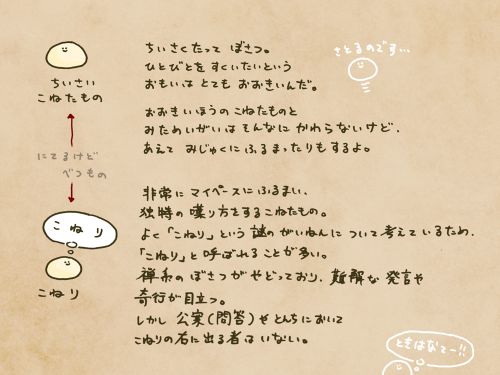 ちいさくたって ぼさつ。
ひとびとを すくいたいという
おもいは とても おおきいんだ。
さとるのです…
ちいさい
こねたもの
おおきいほうの こねたものと
みためいがいは そんなに かわらないけど、
あえて みじゅくに ふるまったりもするよ。
にてるけど
べつもの
非常に マイペースに ふるまい、
独特の 喋り方を する こねたもの。
よく「こねり」という 謎の がいねんに ついて 考えているため、
「こねり」と 呼ばれることが 多い。
こねり
こねり
禅系の ぼさつが やどっており、難解な 発言や
奇行が 目立つ。
しかし 公案(問答)や とんちにおいて
こねりの 右に 出る 者は いない。
ときはなてー!!